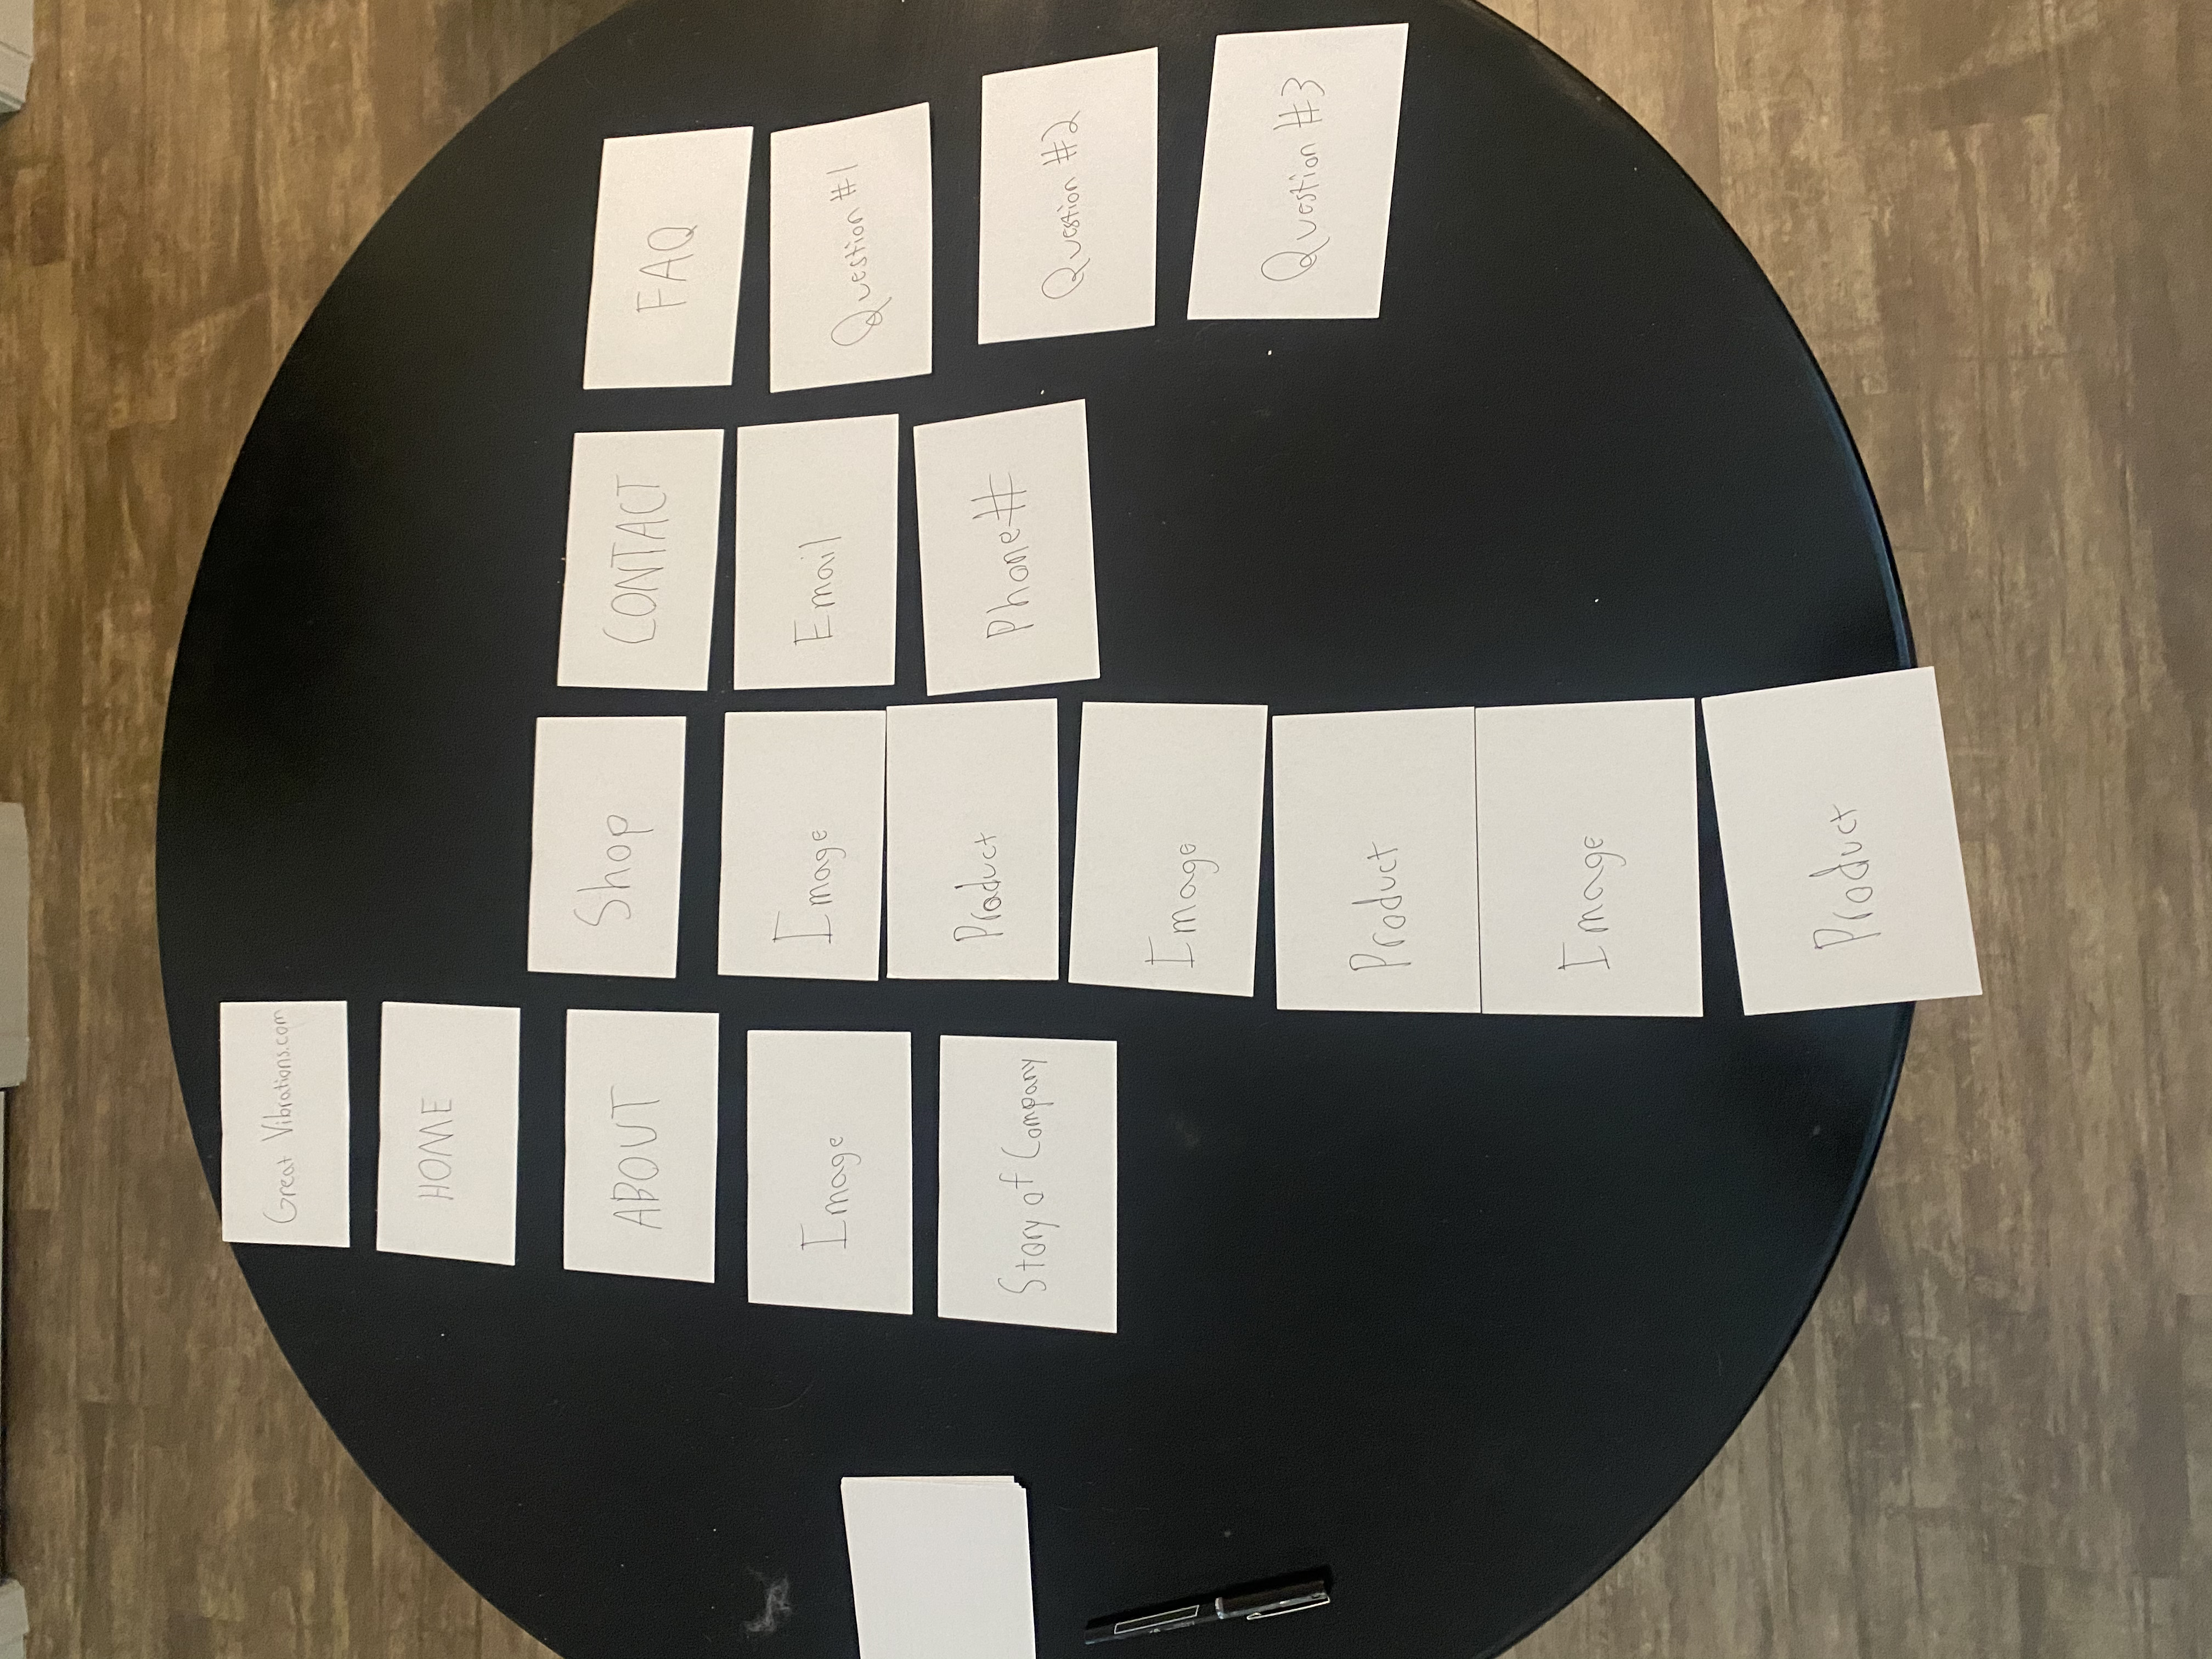 Great Vibrations.com
HOME
ABOUT
Image
Story of Company
Shop
Image
Product
Image
Product
Image
Product
CONTACT
Email
Phone#
FAQ
Question #1
Question #2
Question #3